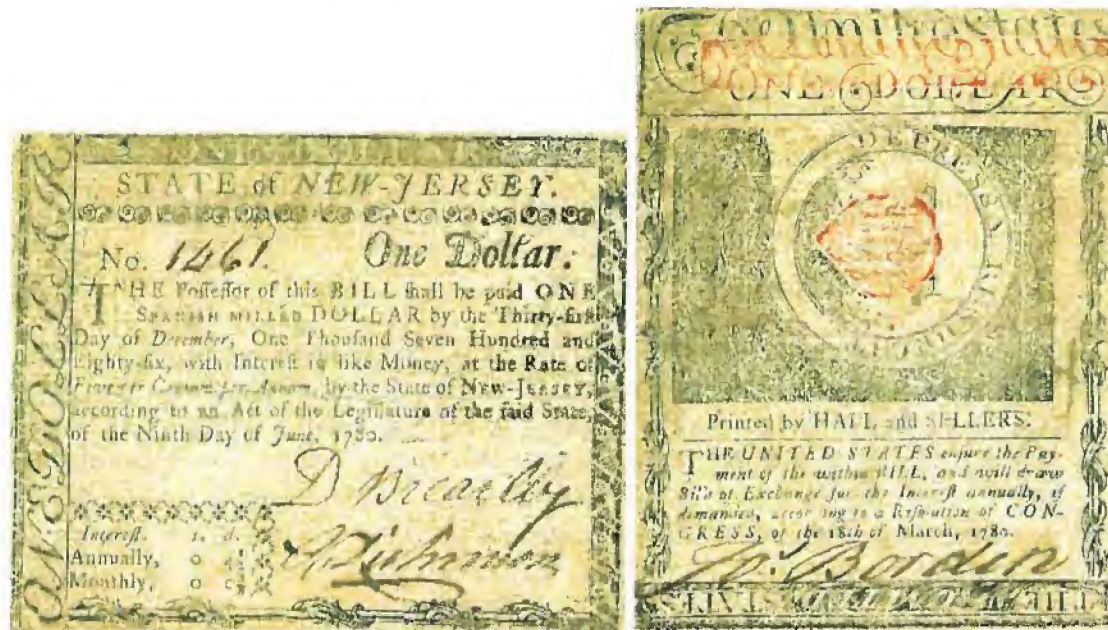 STATE of NEW-JERSEY.
No. 1461. One Dollar.
THE Possessor of this BILL shall be paid ONE
SPANISH MILLED DOLLAR by the Thirty-first
Day of December, One Thousand Seven Hundred and
Eighty-six, with Interest in like Money, at the Rate of
Five per Centum per Annum, by the State of NEW-JERSEY,
according to an Act of the Legislature of the said State,
of the Ninth Day of June, 1780.
D Brearley
Interest. s. d.
Annually, 0
Monthly, 0
ONE DOLLAR
The United States
ONE DOLLAR
DEPRESSA
Printed by HALL and SELLERS.
THE UNITED STATES ensure the Pay-
ment of the within BILL, and will draw
Bills of Exchange for the Interest annually, if
demanded, according to a Resolution of CON-
GRESS, of the 18th of March, 1780.
Jos. Borden
THE STATES